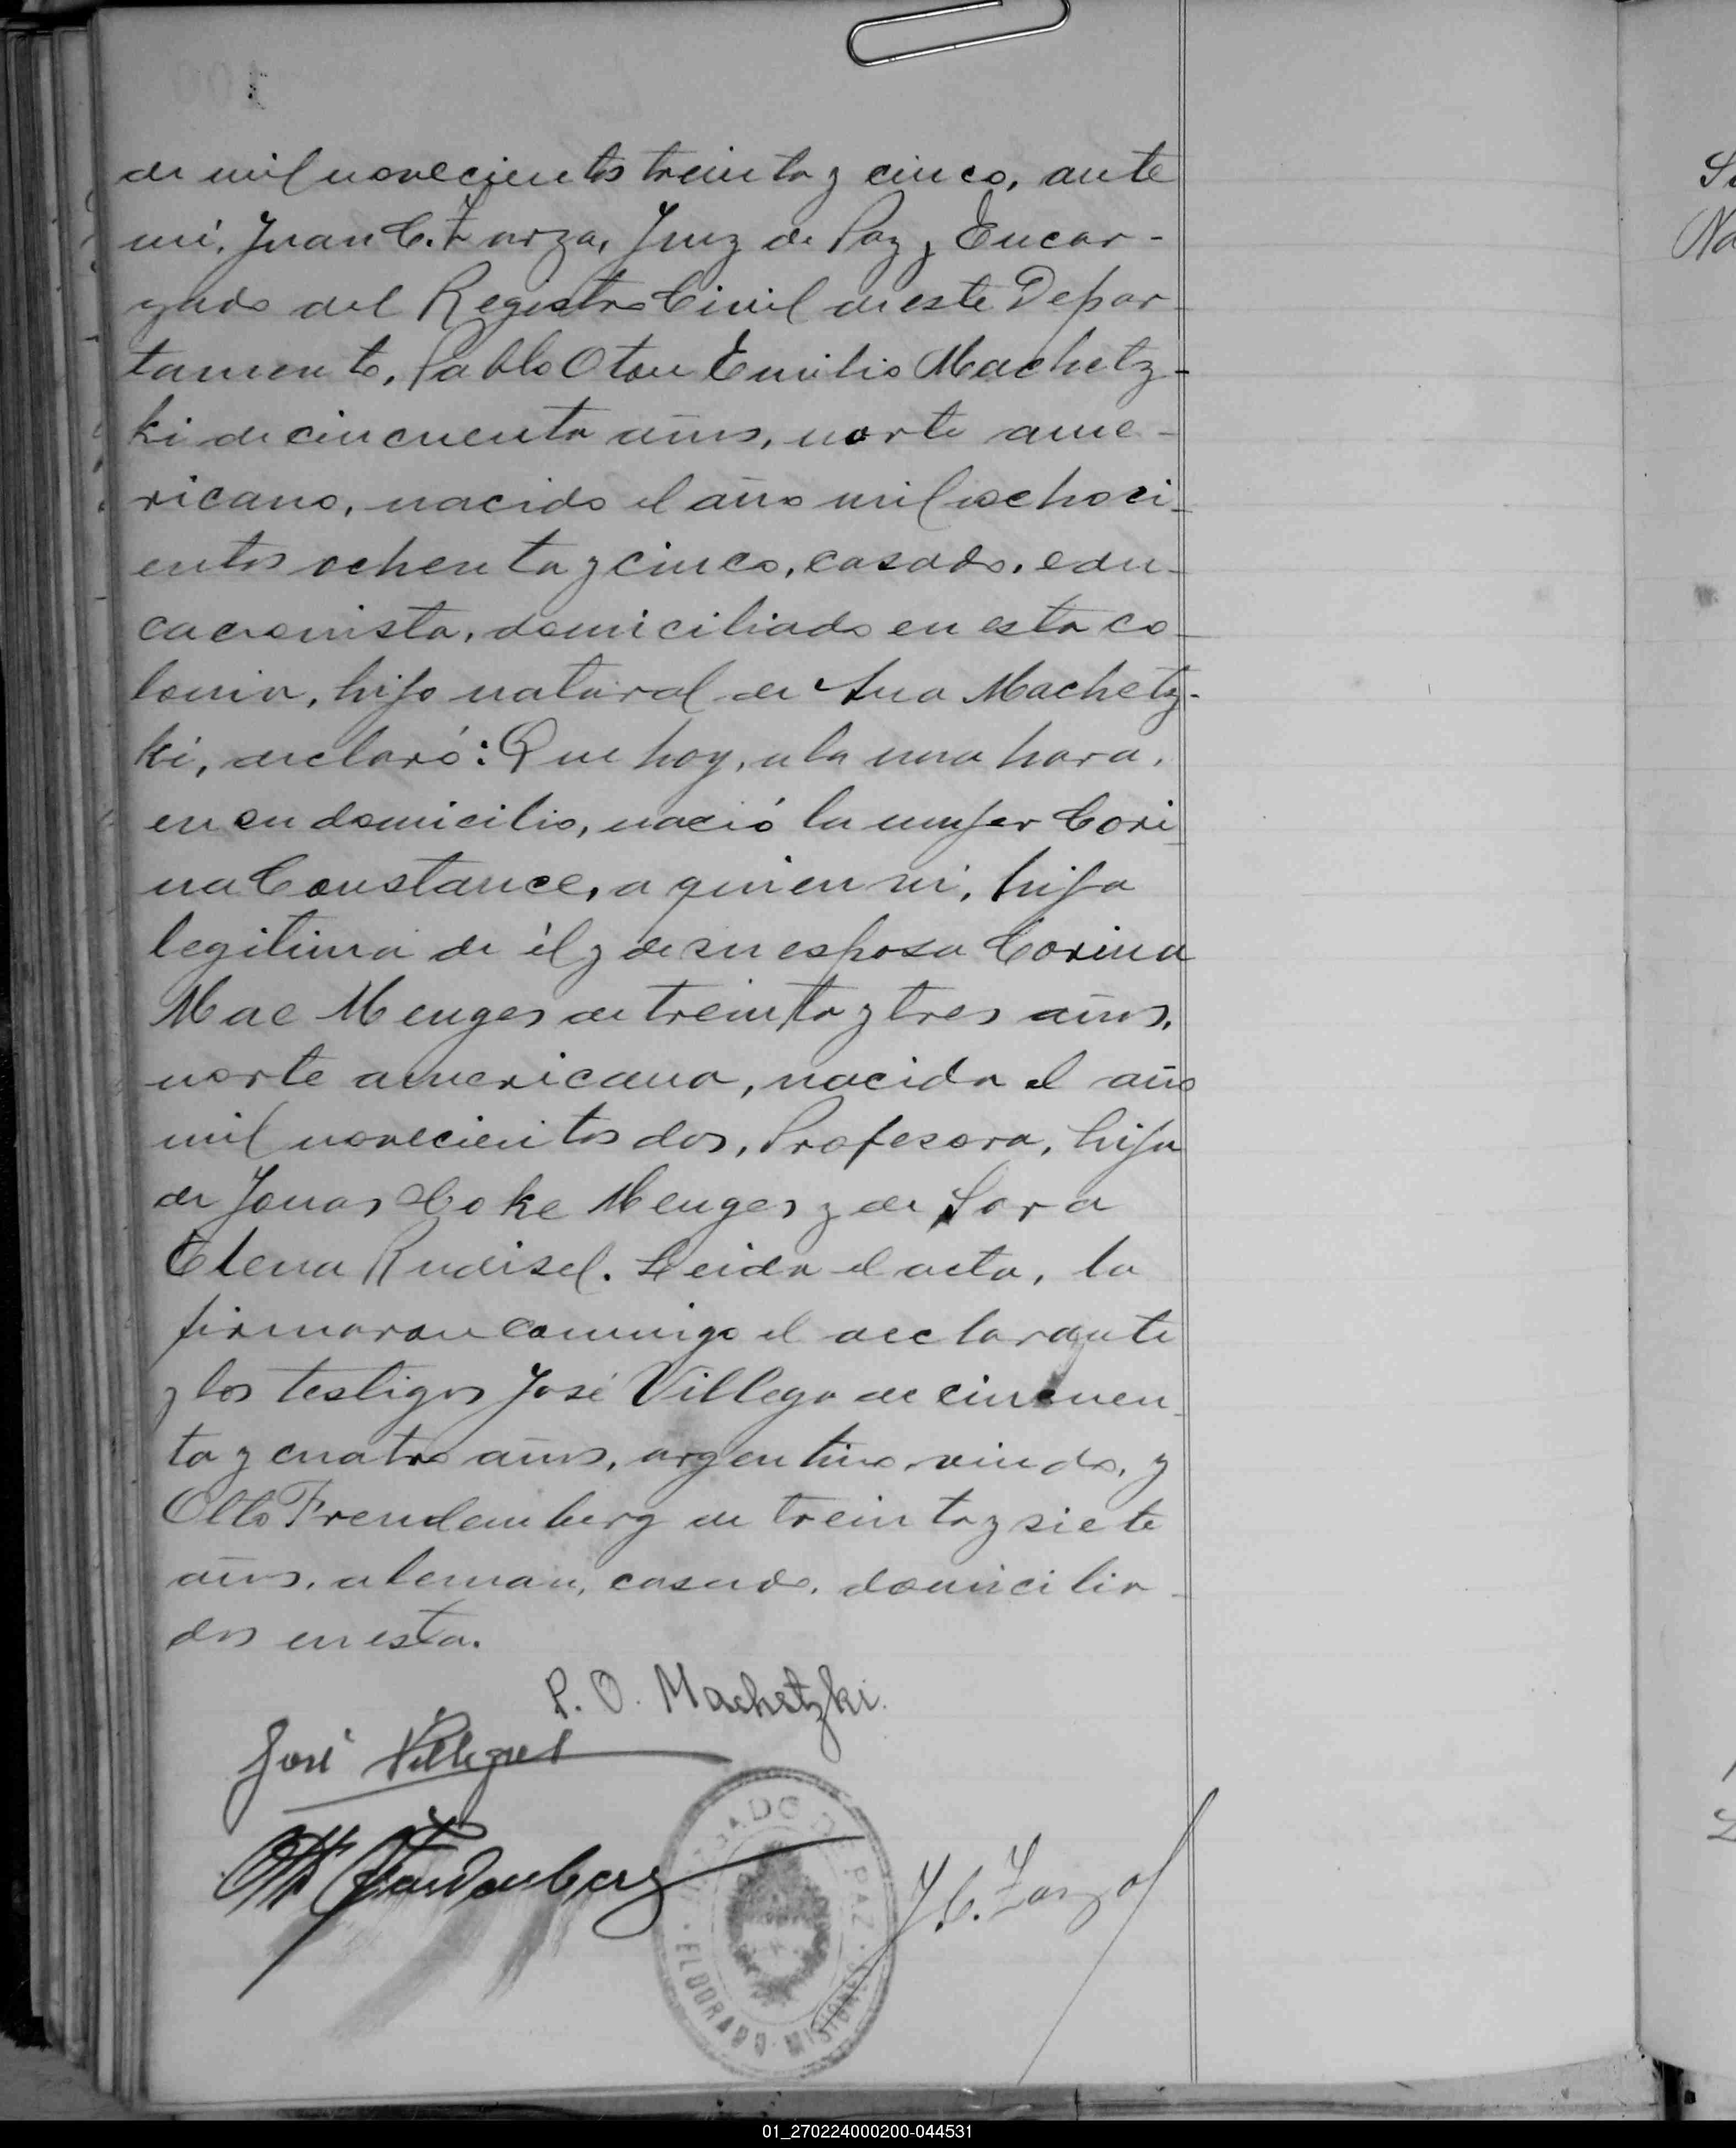 de mil novecientos treinta y cinco, ante
mi, Juan C. Zarza, Juez de Paz y Encar-
gado del Registro Civil de este Depar-
tamento, Pablo Oton Emilio Machetz-
ki de cincuenta años, norte ame-
ricano, nacido el año mil ochoci-
entos ochenta y cinco, casado, edu-
cacionista, domiciliado en esta co-
lonia, hijo natural de Ana Machetz-
ki, declaró: Que hoy, a la una hora,
en su domicilio, nació la mujer Cori
na Constance, a quien vi, hija
legitima de él y de su esposa Corina
Mae Menges de treinta y tres años,
norte americana, nacida el año
mil novecientos dos, Profesora, hija
de Jonas Coke Menges y de Sara
Elena Rudisel. Leida el acta, la
firmaron conmigo el declarante
y los testigos José Villega de cincuen-
ta y cuatro años, argentino, viudo, y
Otto Freudemberg de treinta y siete
años, aleman, casado, domicilia-
dos en esta.
P. O. Machetzki.
José Villegas
Otto Freudenberg
JUZGADO DE PAZ
ELDORADO · MISIONES
J. C. Zarza
Na
01_270224000200-044531